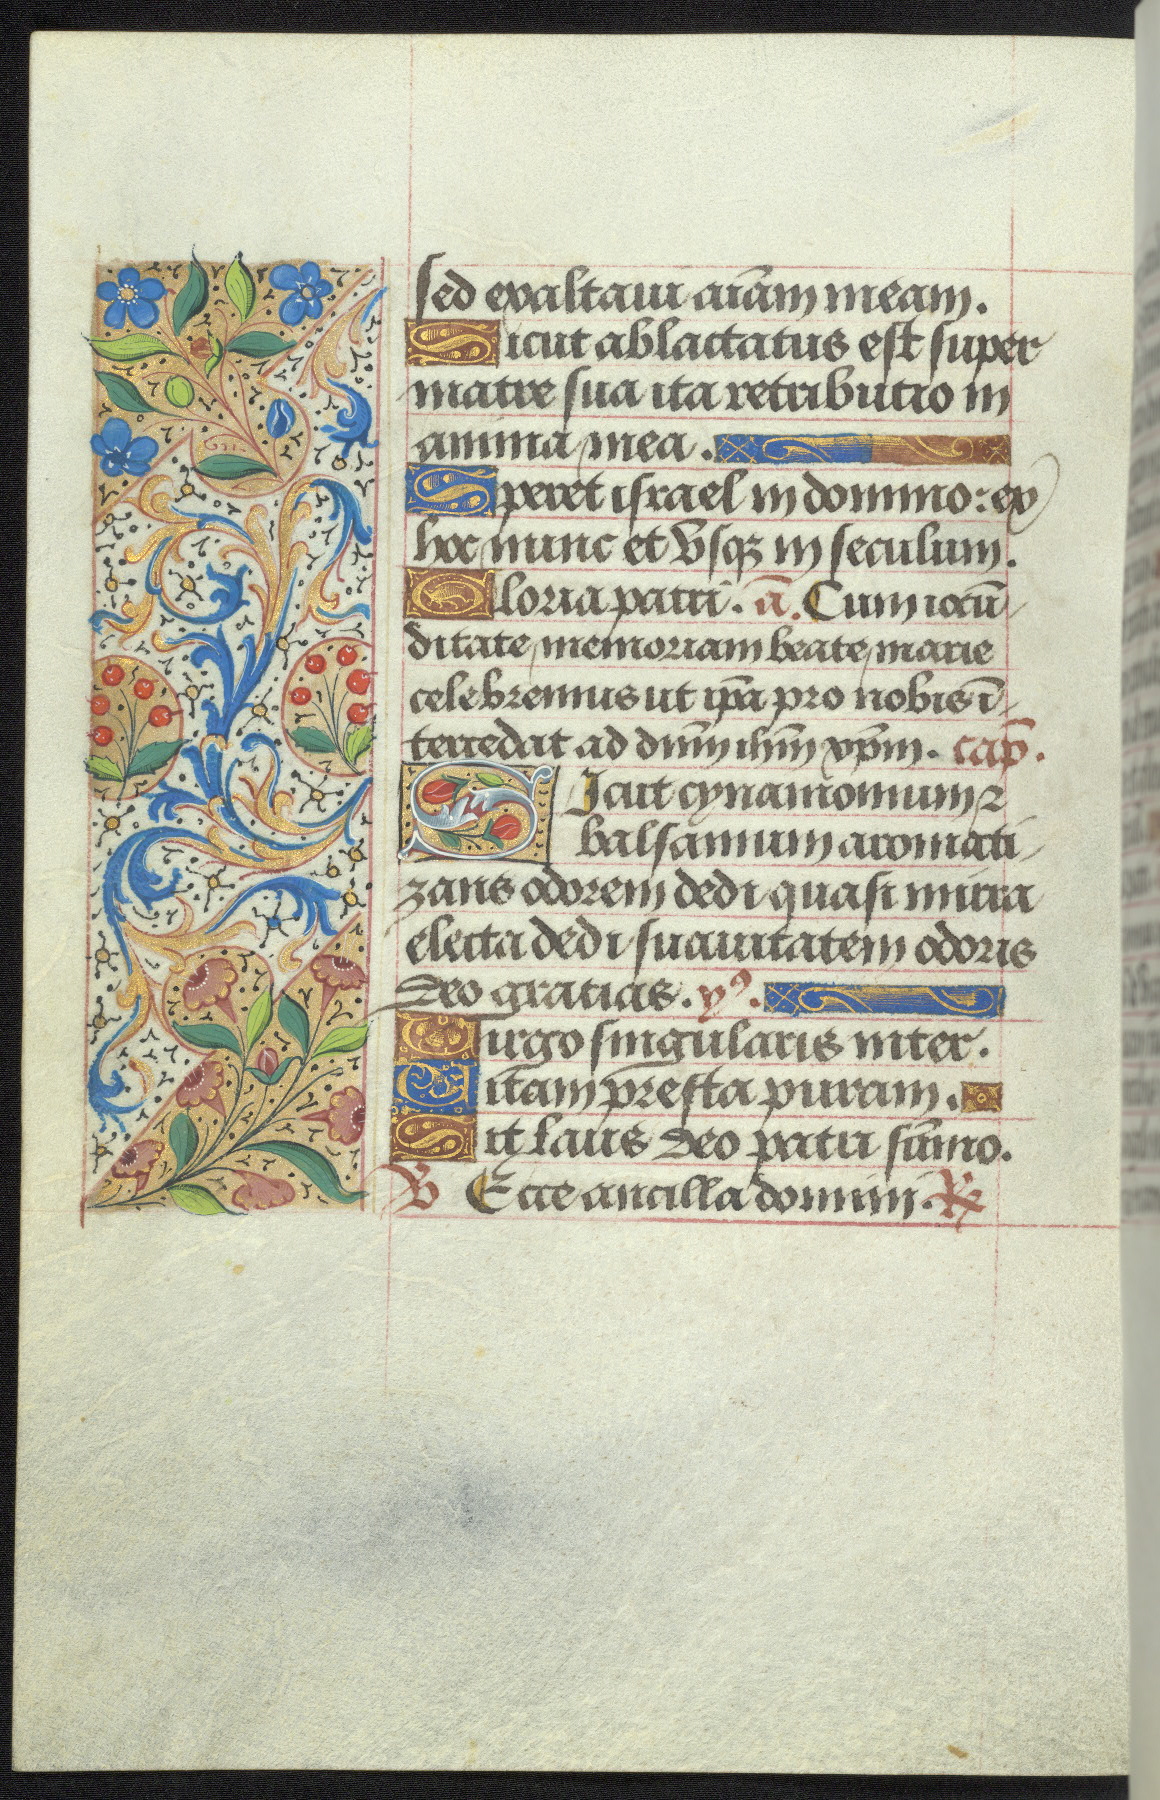 sed exaltaui aīam meam.
Sicut ablactatus est super
matre sua ita retributio in
anima mea.
Speret israel in domino: ex
hoc nunc et vsqꝫ in seculum.
Gloria patri. ā. Cum iocū
ditate memoriam beate marie
celebremus ut ip̄a pro nobis ī
tercedat ad dn̄m ihm̄ xp̄m. cap̄.
Sicut cynamomum ⁊
balsamum aromati
zans odorem dedi quasi mirra
electa dedi suauitatem odoris
deo gratias. yꝰ.
Uirgo singularis inter.
Uitam presta puram.
Sit laus deo patri sūmo.
℣ Ecce ancilla domini. ℟